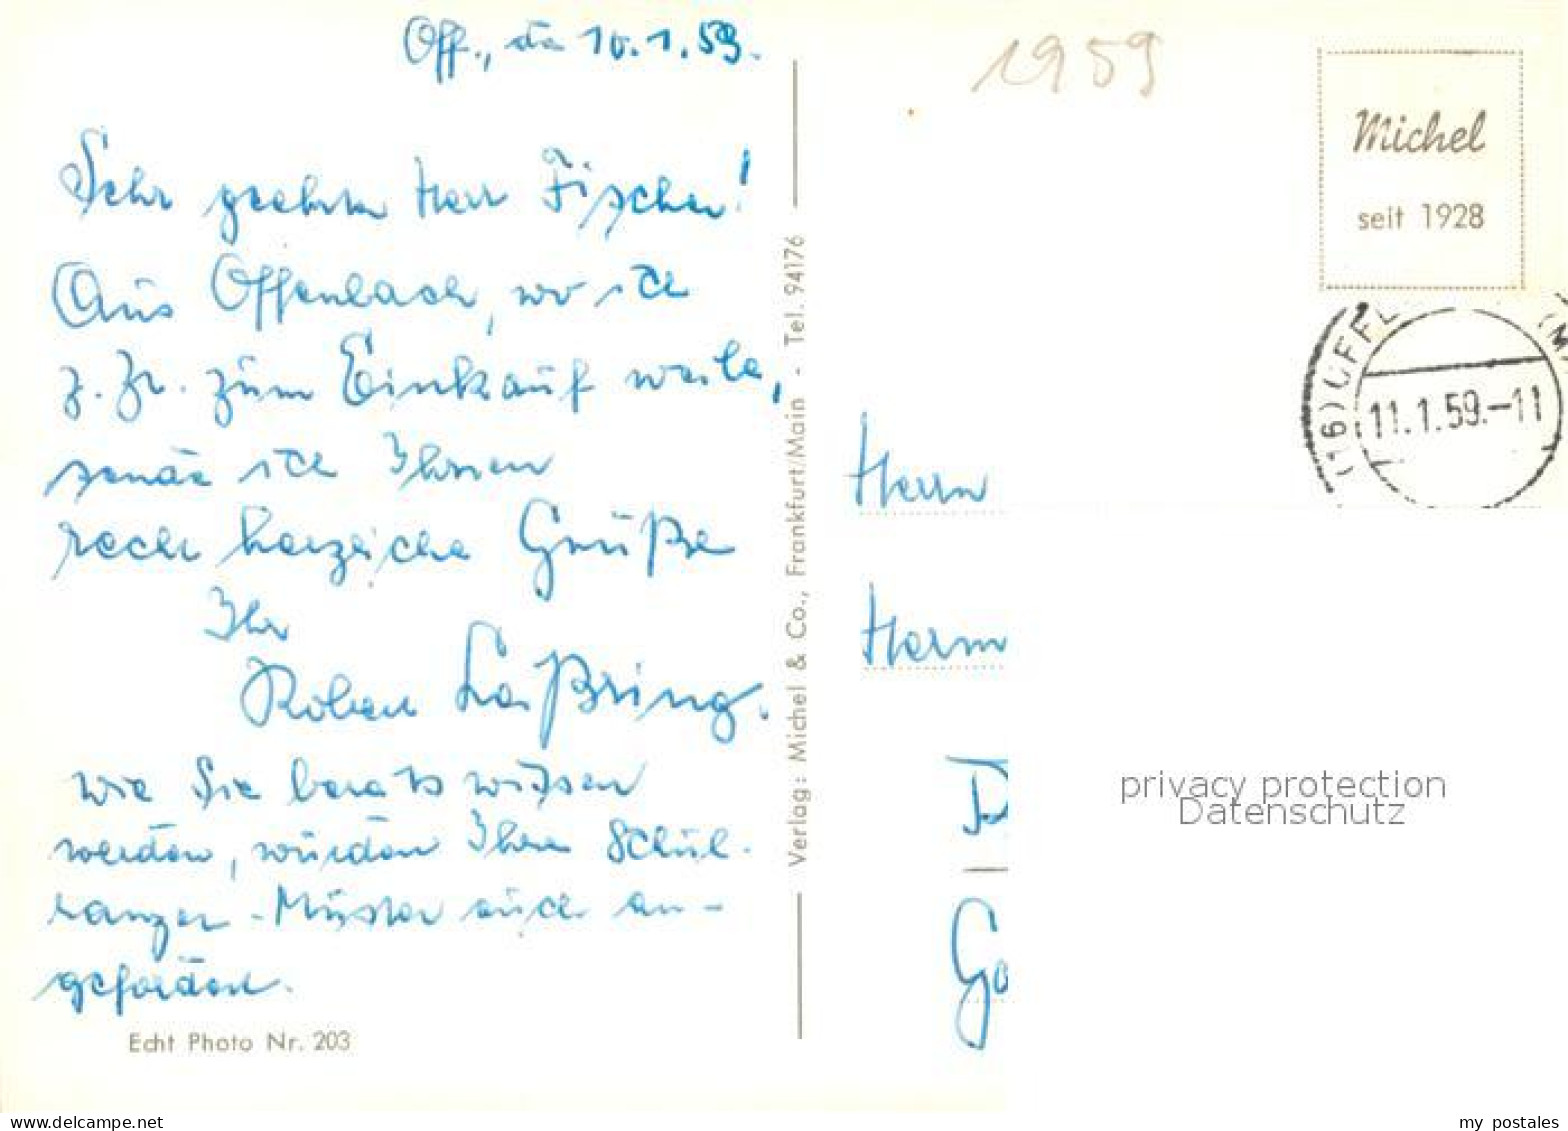 Off., den 10.1.59.
Sehr geehrter Herr Fischer!
Aus Offenbach, wo ich
z. Zt. zum Einkauf weile,
sende ich Ihnen
recht herzliche Grüße
Ihr
Robert Laßring.
wie Sie bereits wissen
werden, wurden Ihre Schul-
ranzen-Muster auch an-
gefordert.
Echt Photo Nr. 203
Verlag: Michel & Co., Frankfurt/Main - Tel. 94176
1959
Michel
seit 1928
(16) OFFE (M
11.1.59.-11
Herrn
Herm
Go
privacy protection
Datenschutz
my postales